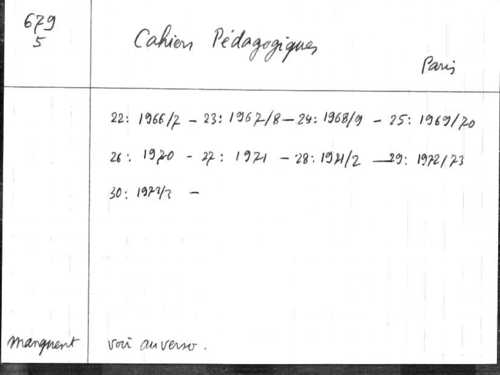 679
5
Cahiers Pédagogiques
Paris
22: 1966/7 - 23: 1967/8 - 24: 1968/9 - 25: 1969/70
26: 1970 - 27: 1971 - 28: 1971/2 - 29: 1972/73
30: -
manquent voir au verso.